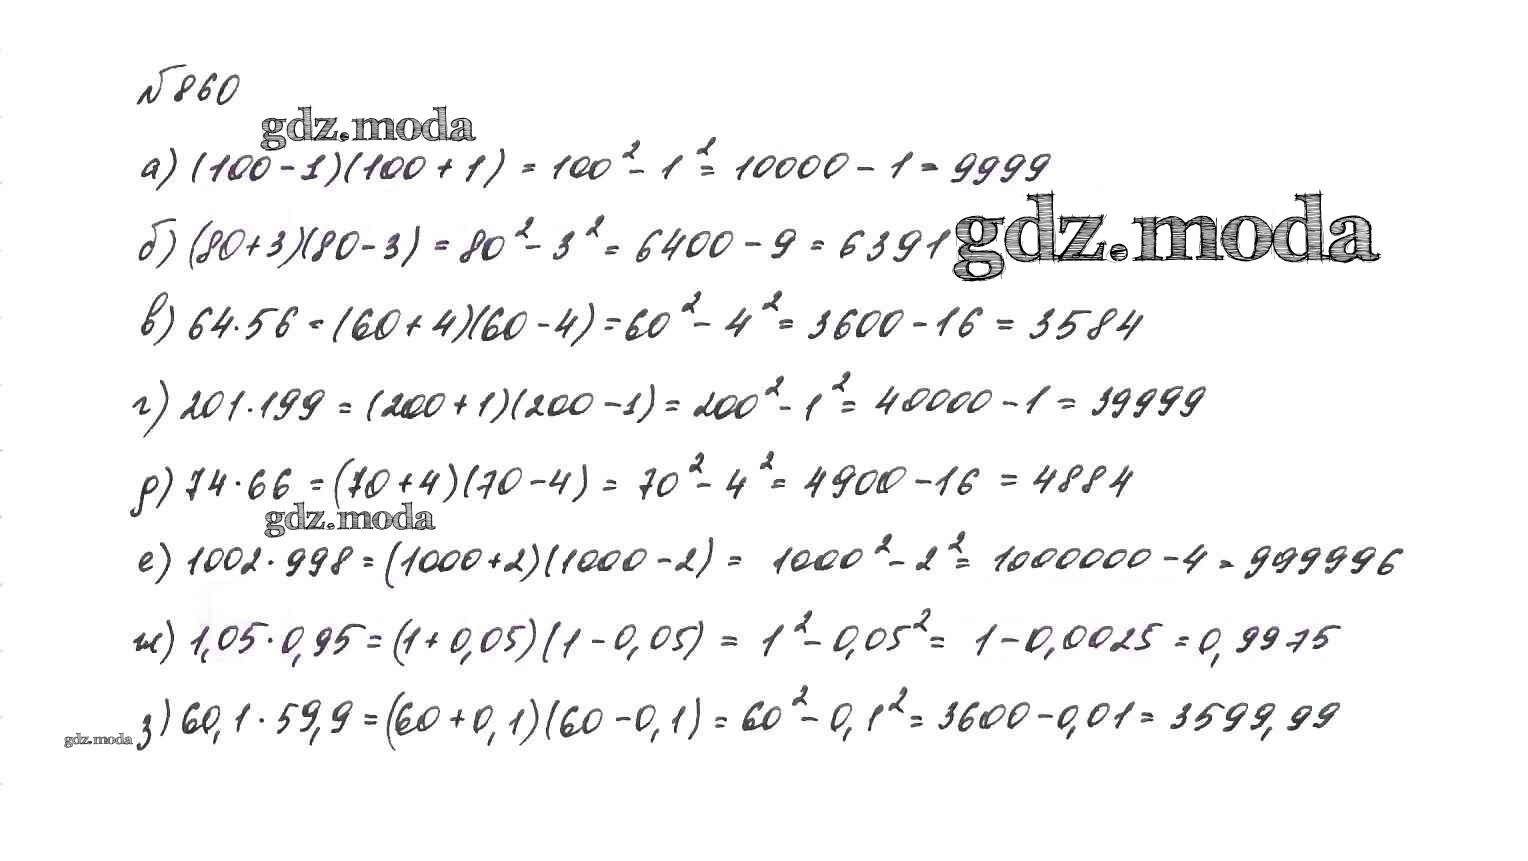 № 860
gdz.moda
а) (100 - 1)(100 + 1) = 100² - 1² = 10000 - 1 = 9999
gdz.moda
б) (80 + 3)(80 - 3) = 80² - 3² = 6400 - 9 = 6391
в) 64 · 56 = (60 + 4)(60 - 4) = 60² - 4² = 3600 - 16 = 3584
г) 201 · 199 = (200 + 1)(200 - 1) = 200² - 1² = 40000 - 1 = 39999
д) 74 · 66 = (70 + 4)(70 - 4) = 70² - 4² = 4900 - 16 = 4884
gdz.moda
е) 1002 · 998 = (1000 + 2)(1000 - 2) = 1000² - 2² = 1000000 - 4 = 999996
ж) 1,05 · 0,95 = (1 + 0,05)(1 - 0,05) = 1² - 0,05² = 1 - 0,0025 = 0,9975
з) 60,1 · 59,9 = (60 + 0,1)(60 - 0,1) = 60² - 0,1² = 3600 - 0,01 = 3599,99
gdz.moda